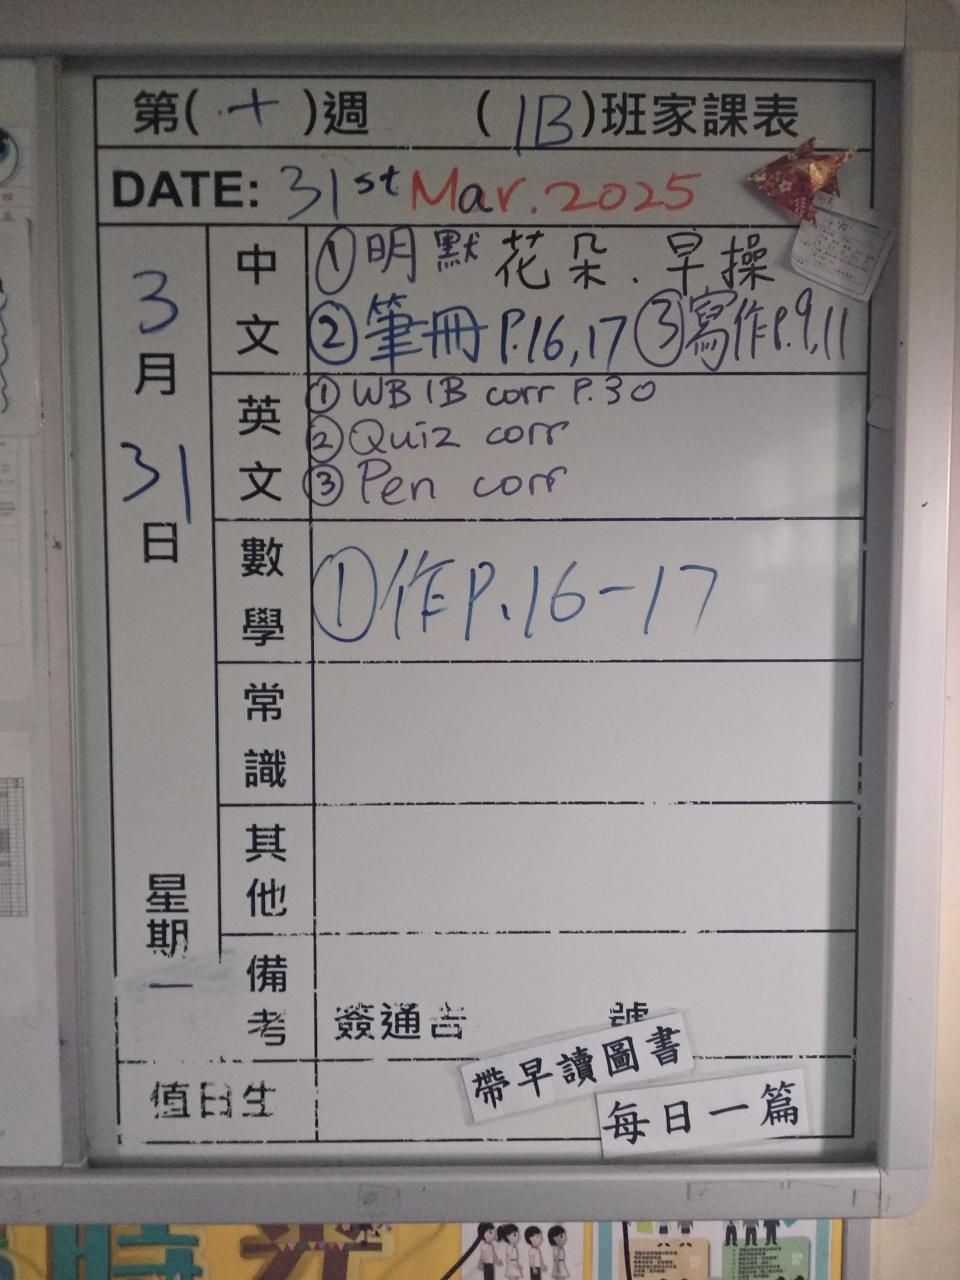 第(十)週 (1B)班家課表
DATE: 31st Mar. 2025
3月31日
星期一
中文
①明默 花朵.早操
②筆冊 P.16,17 ③寫作P.9,11
英文
① WB 1B corr P.30
② Quiz corr
③ Pen corr
數學
①作P.16-17
常識
其他
備考
簽通告 號
帶早讀圖書
值日生
每日一篇